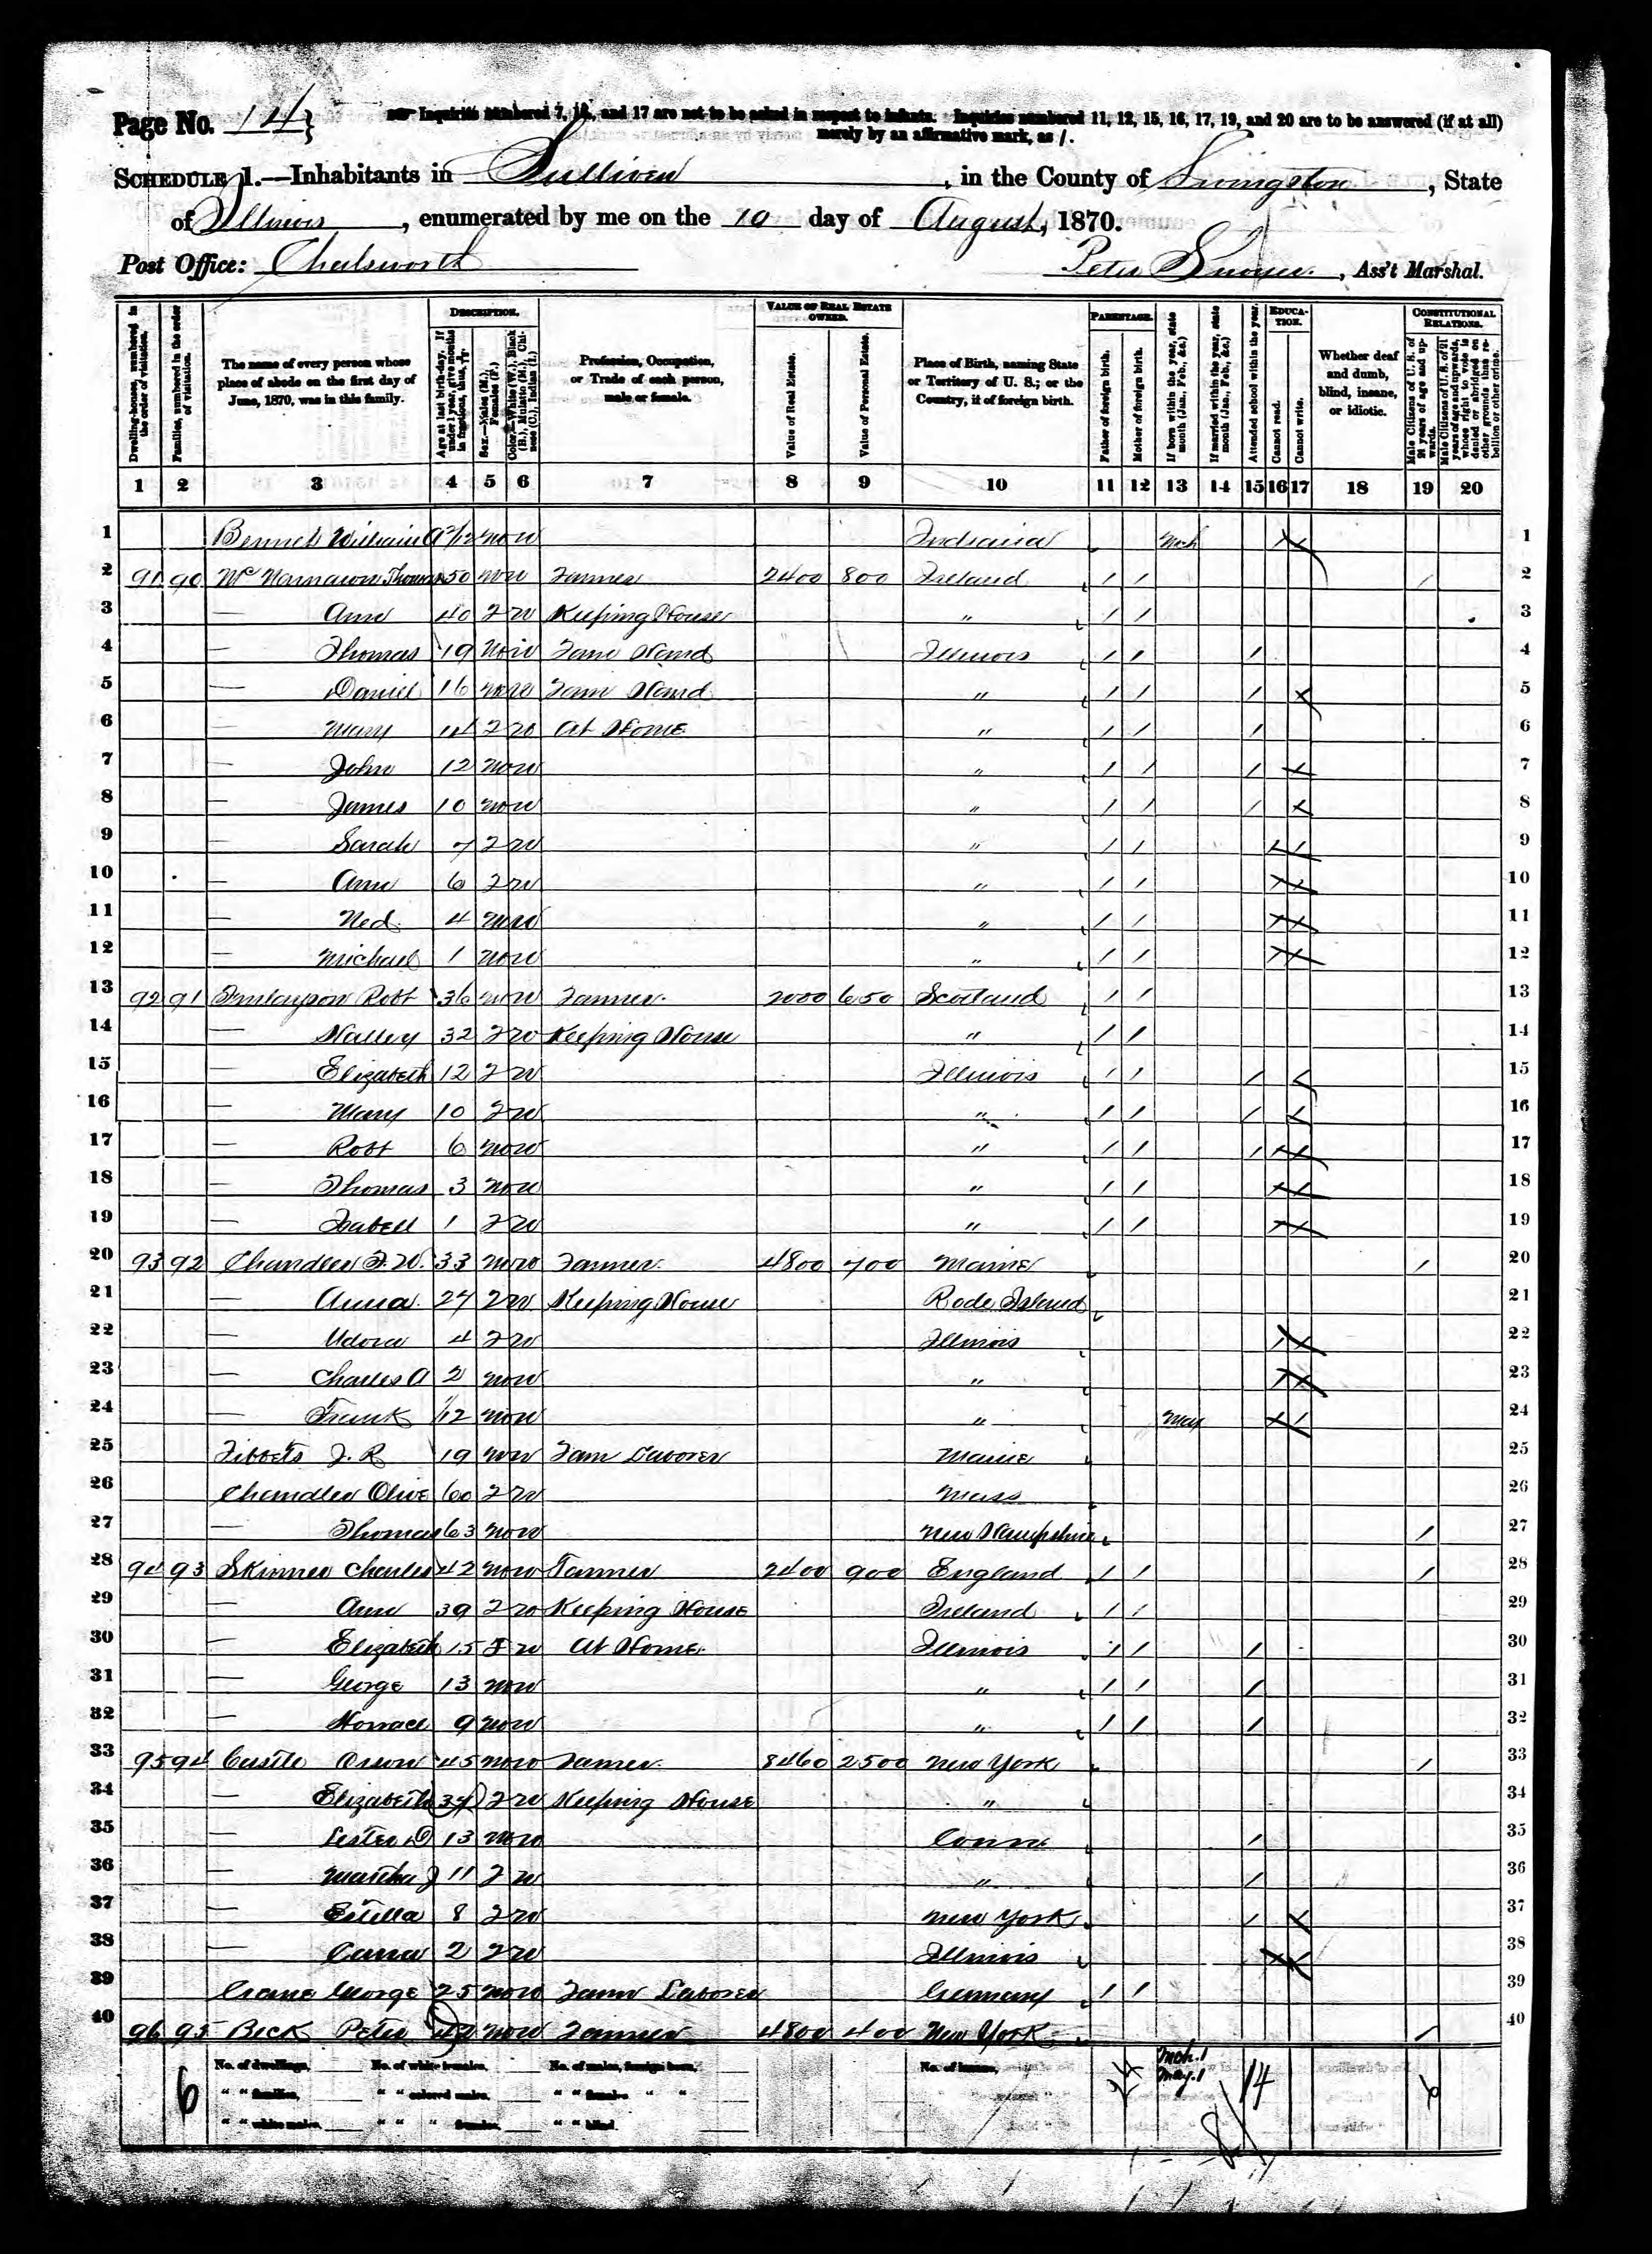 Page No. 14
Inquiries numbered 7, 16, and 17 are not to be asked in respect to infants. Inquiries numbered 11, 12, 15, 16, 17, 19, and 20 are to be answered (if at all)
merely by an affirmative mark, as /.
SCHEDULE 1.—Inhabitants in Sullivan, in the County of Livingston, State
of Illinois, enumerated by me on the 10 day of August, 1870.
Post Office: Chatsworth
Peter, Ass't Marshal.
Dwelling-houses, numbered in the order of visitation.
Families, numbered in the order of visitation.
The name of every person whose place of abode on the first day of June, 1870, was in this family.
DESCRIPTION.
Age at last birth-day. If under 1 year, give months in fractions, thus, 3/12.
Sex.—Males (M.), Females (F.)
Color.—White (W.), Black (B.), Mulatto (M.), Chinese (C.), Indian (I.)
Profession, Occupation, or Trade of each person, male or female.
VALUE OF REAL ESTATE OWNED.
Value of Real Estate.
Value of Personal Estate.
Place of Birth, naming State or Territory of U. S.; or the Country, if of foreign birth.
PARENTAGE.
Father of foreign birth.
Mother of foreign birth.
If born within the year, state month (Jan., Feb., &c.)
If married within the year, state month (Jan., Feb., &c.)
Attended school within the year.
EDUCATION.
Cannot read.
Cannot write.
Whether deaf and dumb, blind, insane, or idiotic.
CONSTITUTIONAL RELATIONS.
Male Citizens of U. S. of 21 years of age and upwards.
Male Citizens of U. S. of 21 years of age and upwards, whose right to vote is denied or abridged on other grounds than rebellion or other crime.
1 2 3 4 5 6 7 8 9 10 11 12 13 14 15 16 17 18 19 20
1 Bennet William A 3/12 M W Indiana Mch 1
2 91 90 Thomas 50 M W Farmer 2400 800 Ireland / / / 2
3 — Ann 40 F W Keeping House " / / 3
4 — Thomas 19 M W Farm Hand Illinois / / / 4
5 — Daniel 16 M W Farm Hand " / / / 5
6 — Mary 14 F W At Home " / / / 6
7 — John 12 M W " / / / 7
8 — James 10 M W " / / / 8
9 — Sarah 7 F W " / / 9
10 — Ann 6 F W " / / 10
11 — Ned 4 M W " / / 11
12 — Michael 1 M W " / / 12
13 92 91 Finlayson Robt 36 M W Farmer 2000 650 Scotland / / 13
14 — 32 F W Keeping House " / / 14
15 — Elizabeth 12 F W Illinois / / / 15
16 — Mary 10 F W " / / / 16
17 — Robt 6 M W " / / / 17
18 — Thomas 3 M W " / / 18
19 — Isabell 1 F W " / / 19
20 93 92 Chandler F. W. 33 M W Farmer 4800 700 Maine / 20
21 — Anna 27 F W Keeping House Rode Island 21
22 — Udora 4 F W Illinois 22
23 — Charles A 2 M W " 23
24 — Frank 1/12 M W " May 24
25 Tibbets J. R 19 M W Farm Laborer Maine 25
26 Chandler Olive 60 F W Mass 26
27 — Thomas 63 M W New Hampshire / 27
28 94 93 Skinner Charles 42 M W Farmer 2400 900 England / / / 28
29 — Ann 39 F W Keeping House Ireland / / 29
30 — Elizabeth 15 F W At Home Illinois / / / 30
31 — George 13 M W " / / / 31
32 — Horrace 9 M W " / / / 32
33 95 94 Castle Orson 45 M W Farmer 8460 2500 New York / 33
34 — Elizabeth F W Keeping House " 34
35 — Lester D 13 M W Conn / 35
36 — Martha J 11 F W " / 36
37 — Estella 8 F W New York / 37
38 — 2 F W Illinois 38
39 George 25 M W Farm Laborer Germany / / 39
40 96 95 Beck Peter M W Farmer 4800 400 New York / 40
6
No. of dwellings, No. of white females, No. of males, foreign born, No. of insane,
" " families, " " colored males, " " females " "
" " white males, " " " females, " " blind.
Mch. 1
May. 1
14